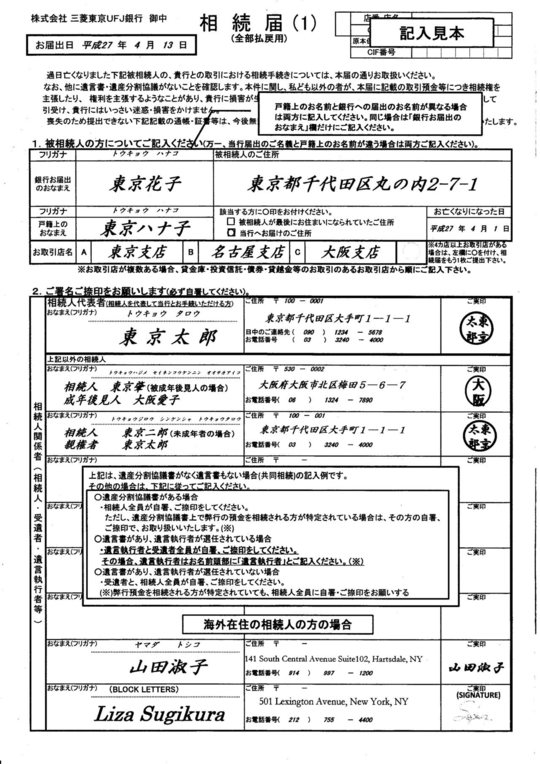 株式会社 三菱東京UFJ銀行 御中
相続届(1)
(全部払戻用)
記入見本
お届出日 平成27 年 4 月 13 日
CIF番号
過日亡くなりました下記被相続人の、貴行との取引における相続手続きについては、本届の通りお取扱いください。
なお、他に遺言書・遺産分割協議がないことを確認します。本件に関し、私ども以外の者が、本届に記載の取引預金等につき相続権を
主張したり、権利を主張するようなことがあり、貴行に損害が生
引受け、貴行にはいっさい迷惑・損害をかけません
喪失のため提出できない下記記載の通帳・証書等は、今後無
たします。
戸籍上のお名前と銀行への届出のお名前が異なる場合
は両方に記入してください。同じ場合は「銀行お届出の
おなまえ」欄だけにご記入ください。
1. 被相続人の方についてご記入ください(万一、当行お届出のご名義と戸籍上のお名前が違う場合は両方ご記入ください)。
フリガナ トウキョウ ハナコ 被相続人のご住所
銀行お届出のおなまえ 東京花子 東京都千代田区丸の内2-7-1
フリガナ トウキョウ ハナコ 該当する方に〇印をお付けください。 お亡くなりになった日
戸籍上のおなまえ 東京ハナ子 被相続人が最後にお住まいになられていたご住所
当行へお届けのご住所 平成27 年 4 月 1 日
お取引店名 A 東京支店 B 名古屋支店 C 大阪支店
※4カ店以上お取引店がある場合は、左欄に〇を付け、相続届をもう1枚ご提出下さい。
※お取引店が複数ある場合、貸金庫・投資信託・債券・貸越金等のお取引のあるお取引店から順にご記入下さい。
2. ご署名ご捺印をお願いします(必ず自署してください)。
相続人代表者(相続人を代表して当行とお手続いただける方) ご住所 〒 100 - 0001 ご実印
おなまえ(フリガナ) トウキョウ タロウ
東京太郎 東京都千代田区大手町1-1-1
日中のご連絡先( 090 ) 1234 - 5678
お電話番号 ( 03 ) 3240 - 4000
上記以外の相続人
相続人関係者(相続人・受遺者・遺言執行者等)
おなまえ(フリガナ) トウキョウハジメ セイネンコウケンニン オオサカアイコ ご住所 〒 530 - 0002 ご実印
相続人 東京肇(被成年後見人の場合) 大阪府大阪市北区梅田5-6-7 大阪
成年後見人 大阪愛子 お電話番号( 06 ) 1324 - 7890
おなまえ(フリガナ) トウキョウジロウ シンケンシャ トウキョウタロウ ご住所 〒 100 - 001 ご実印
相続人 東京二郎(未成年者の場合) 東京都千代田区大手町1-1-1
親権者 東京太郎 お電話番号( 03 ) 3240 - 4000
おなまえ(フリガナ) ご住所 〒 - ご実印
上記は、遺産分割協議書がなく遺言書もない場合(共同相続)の記入例です。
その他の場合は、下記に従ってご記入ください。
〇遺産分割協議書がある場合
・相続人全員が自署、ご捺印をしてください。
ただし、遺産分割協議書上で弊行の預金を相続される方が特定されている場合は、その方の自署、
ご捺印で、お取り扱いいたします。(※)
〇遺言書があり、遺言執行者が選任されている場合
・遺言執行者と受遺者全員が自署、ご捺印をしてください。
その場合、遺言執行者はお名前頭部に「遺言執行者」とご記入ください。(※)
〇遺言書があり、遺言執行者が選任されていない場合
・受遺者と、相続人全員が自署、ご捺印をしてください。
(※)弊行預金を相続される方が特定されていても、相続人全員に自署・ご捺印をお願いする
ご実印
ご実印
ご実印
海外在住の相続人の方の場合
おなまえ(フリガナ) ヤマダ トシコ ご住所 〒 - ご実印
山田淑子 141 South Central Avenue Suite102, Hartsdale, NY 山田淑子
お電話番号( 914 ) 997 - 1200
おなまえ(フリガナ) (BLOCK LETTERS) ご住所 〒 - ご実印
(SIGNATURE)
Liza Sugikura 501 Lexington Avenue, New York, NY
お電話番号( 212 ) 755 - 4400